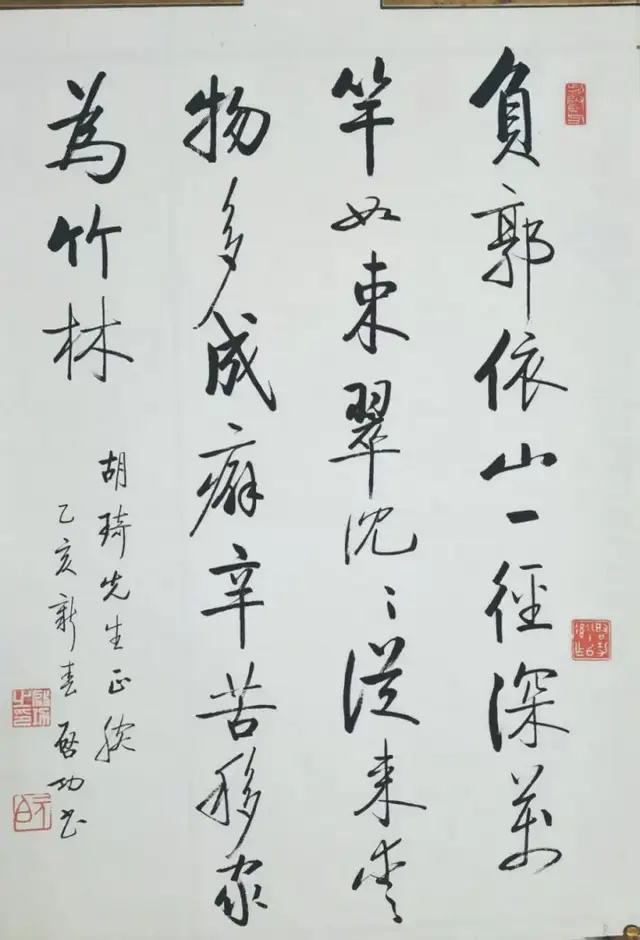 負郭依山一徑深萬
竿如束翠沈〻從来愛
物多成癖辛苦移家
為竹林
胡琦先生正腕
乙亥新春 啓功书